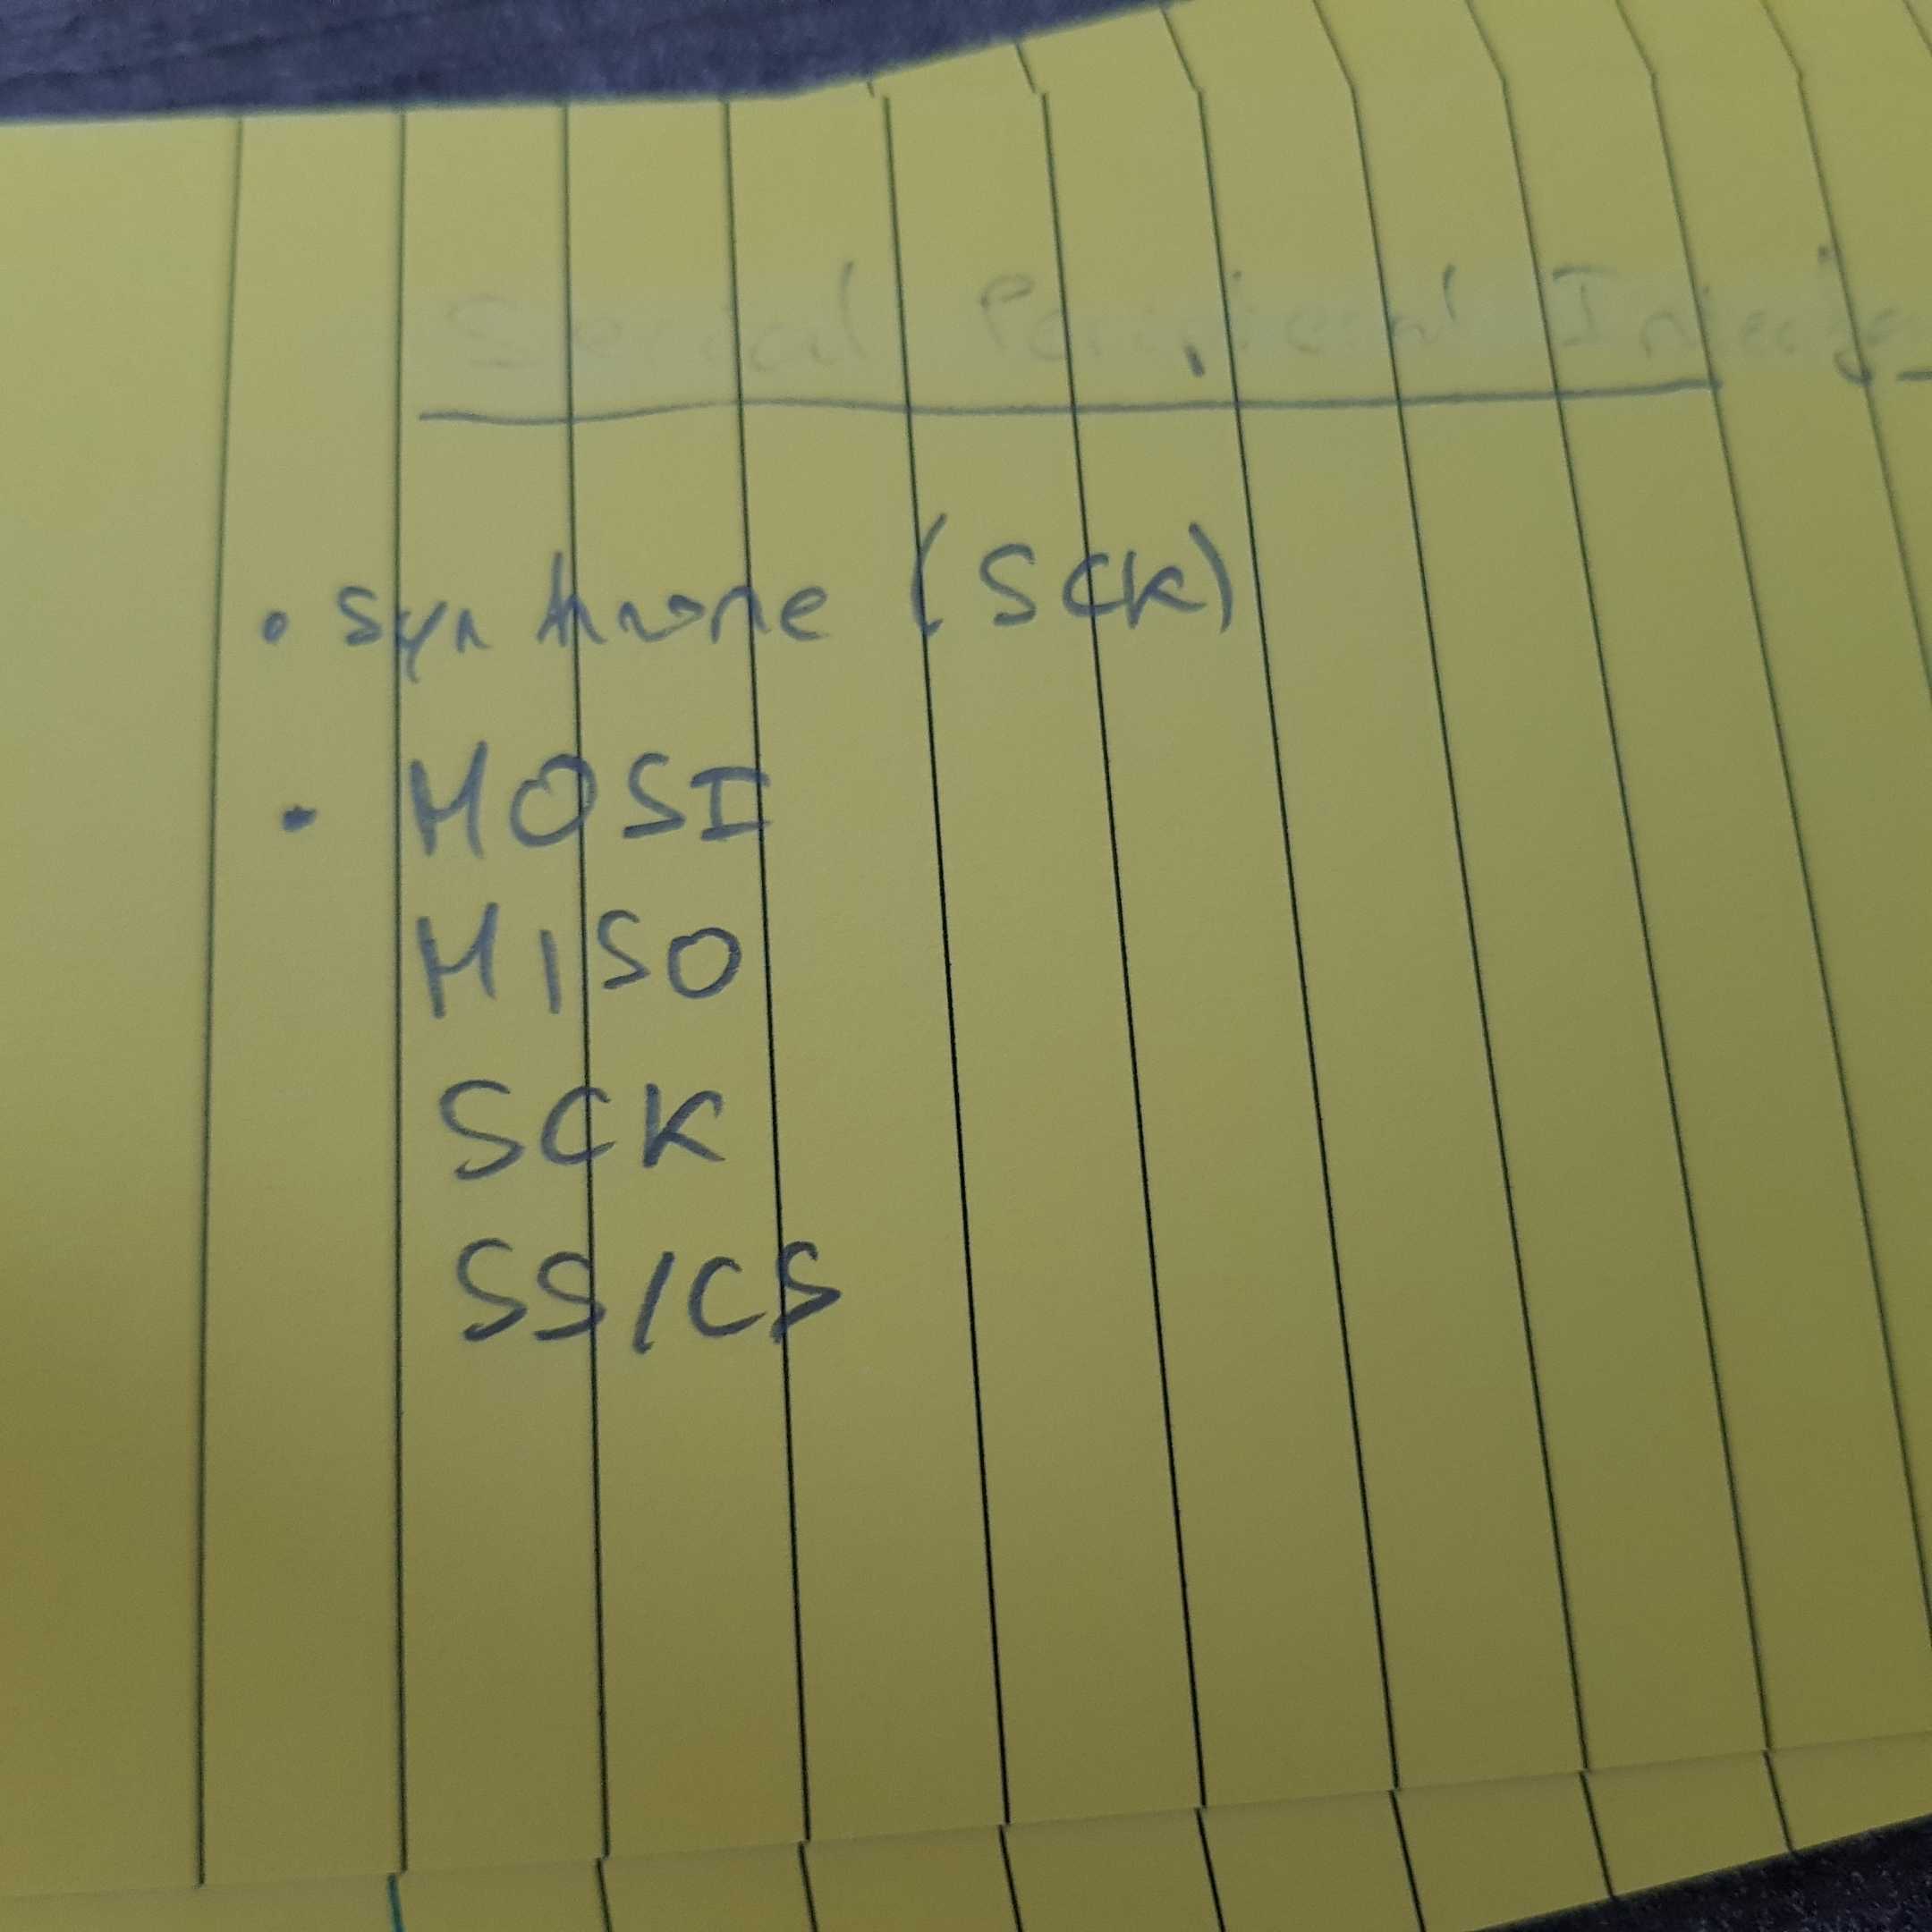 Serial Peripheral Interface
• Synchrone (SCK)
• MOSI
MISO
SCK
SS/CS